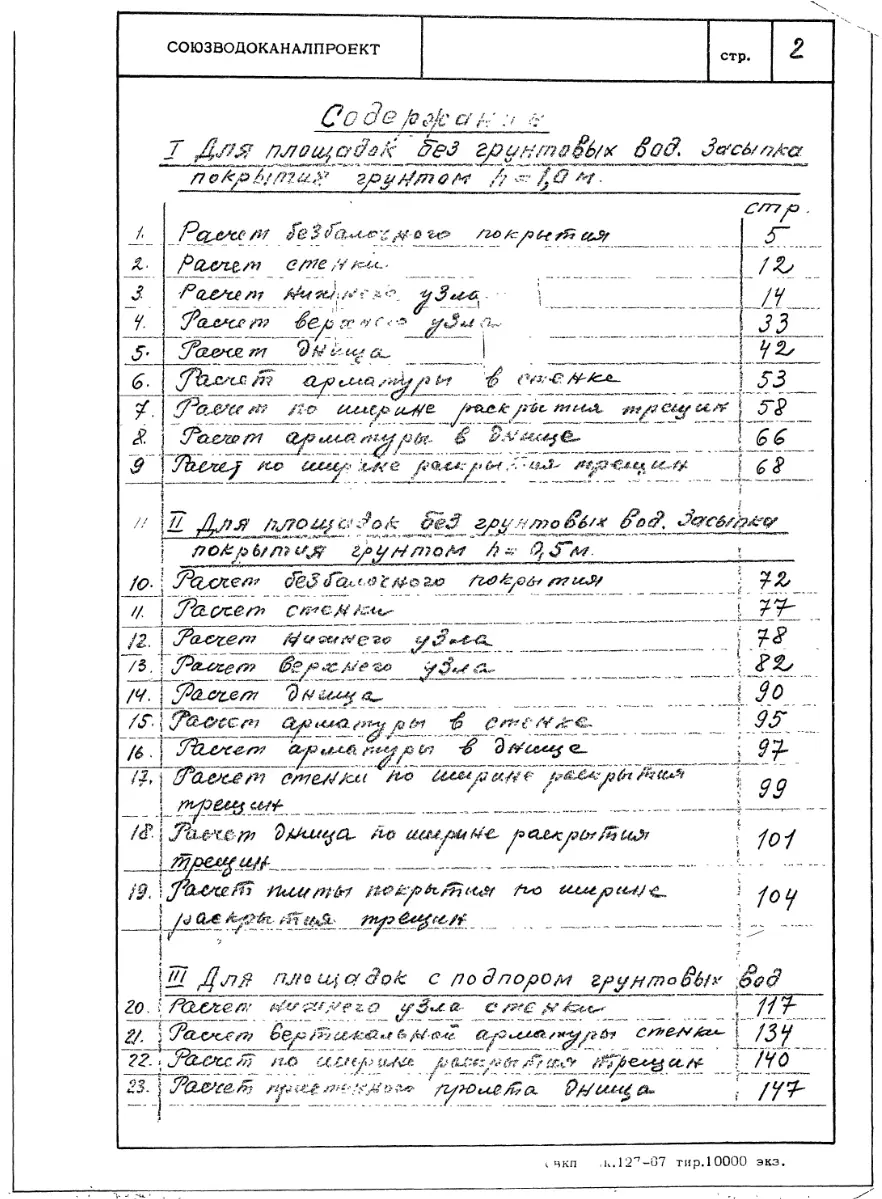 СОЮЗВОДОКАНАЛПРОЕКТ
стр. 2
Содержание
I Для площадок без грунтовых вод. Засыпка
покрытия грунтом h = 1,0 м.
стр.
1. Расчет безбалочного покрытия 5
2. Расчет стенки 12
3. Расчет нижнего узла 14
4. Расчет верхнего узла 33
5. Расчет днища 42
6. Расчет арматуры в стенке 53
7. Расчет по ширине раскрытия трещин 58
8. Расчет арматуры в днище 66
9 Расчет по ширине раскрытия трещин 68
II Для площадок без грунтовых вод. Засыпка
покрытия грунтом h = 0,5 м.
10. Расчет безбалочного покрытия 72
11. Расчет стенки 77
12. Расчет нижнего узла 78
13. Расчет верхнего узла 82
14. Расчет днища 90
15. Расчет арматуры в стенке 95
16. Расчет арматуры в днище 97
17. Расчет стенки по ширине раскрытия
трещин 99
18. Расчет днища по ширине раскрытия
трещин 101
19. Расчет плиты покрытия по ширине
раскрытия трещин 104
III Для площадок с подпором грунтовых вод
20. Расчет нижнего узла стенки 117
21. Расчет вертикальной арматуры стенки 134
22. Расчет по ширине раскрытия трещин 140
23. Расчет пристенного пролета днища 147
тир.10000 экз.